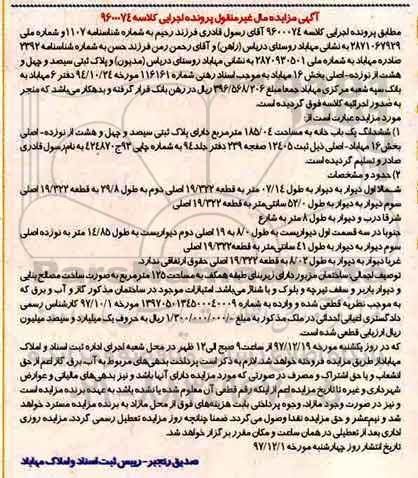 آگهی مزایده مال غیر منقول پرونده اجرایی کلاسه ۹۶۰۰۰۷۴
مطابق پرونده اجرایی کلاسه ۹۶۰۰۰۷۴ آقای رسول قادری فرزند رحیم به شماره شناسنامه ۱۱۰۷ و شماره ملی
۲۸۷۱۰۶۷۹۲۹ به نشانی مهاباد روستای دریاس (راهن) و آقای رحمن رمن فرزند حسن به شماره شناسنامه ۳۳۹۲
صادره مهاباد به شماره ملی ۲۸۷۰۹۲۰۵۰۱ به نشانی مهاباد روستای دریاس (مدیون) و پلاک ثبتی سیصد و چهل و
هشت از نوزده- اصلی بخش ۱۶ مهاباد به موجب اسناد رهنی شماره ۱۱۶۱۶۱ مورخه ۹۴/۱۰/۲۴ دفتر ۶ مهاباد به
بانک سپه شعبه مرکزی مهاباد جمعا مبلغ ۳۹۶/۵۶۸/۲۰۶ ریال در رهن بانک قرار گرفته و بدهکار می‌باشد که منجر
به صدور اجرائیه کلاسه فوق گردیده است.
مورد مزایده عبارت است از:
۱) ششدانگ یک باب خانه به مساحت ۱۸۵/۰۴ مترمربع دارای پلاک ثبتی سیصد و چهل و هشت از نوزده- اصلی
بخش ۱۶ مهاباد- اصلی ذیل ثبت ۱۲۴۰۵ صفحه ۲۳۹ دفتر جلد ۹۴ به شماره چاپی ۹۳ج۴۲۴۸۷۰ به نام رسول قادری
صادر و تسلیم گردیده است.
۲) حدود و مشخصات
شمالا اول دیوار به دیوار به طول ۰۷/۱۴ متر به قطعه ۱۹/۳۲۲ اصلی دوم به طول ۲۹/۸ به قطعه ۱۹/۳۲۲ اصلی
سوم دیوار به دیوار به طول ۵۲/۰ سانتی‌متر به قطعه ۱۹/۳۲۲ اصلی
شرقا درب و دیوار به طول ۸ متر به شارع
جنوبا در سه قسمت اول دیواریست به طول ۸/۰ به ۱۹ اصلی دوم دیواریست به طول ۱۴/۸۵ متر به نوزده اصلی
سوم دیوار به دیوار به طول ۴۱ سانتی‌متر به قطعه ۱۹/۳۲۲ اصلی
غربا دیوار به دیوار به طول ۸/۰۲ به قطعه ۱۹/۳۲۲ اصلی حقوق ارتفاقی ندارد.
توصیف اجمالی ساختمان مزبور دارای زیربنای طبقه همکف به مساحت ۱۲۵ مترمربع به صورت ساخت مصالح بنایی و
و دیوار باربر و سقف تیرچه و بلوک و با شناژ می‌باشد. امتیازات موجود در ساختمان مذکور گاز و آب و برق که
به موجب نظریه قطعی شده و وارده به شماره ۱۳۹۷۰۵۰۱۳۴۵۰۰۰۴۰۰۹ مورخه ۹۷/۱۰/۱ کارشناس رسمی
دادگستری اعیانی احداثی در ملک مذکور به مبلغ ۱/۳۰۰/۰۰۰/۰۰۰ ریال به حروف یک میلیارد و سیصد میلیون
ریال ارزیابی قطعی شده است.
که در روز یکشنبه مورخه ۹۷/۱۲/۱۹ از ساعت ۹ صبح الی ۱۲ ظهر در محل شعبه اجرای اداره ثبت اسناد و املاک
مهاباد از طریق مزایده فروخته خواهد شد. لازم به ذکر است پرداخت بدهی‌های مربوط به آب، برق، گاز اعم از حق
انشعاب و یا حق اشتراک و مصرف در صورتی که مورد مزایده دارای آنها باشد و نیز بدهی‌های مالیاتی و عوارض
شهرداری و غیره تا تاریخ مزایده اعم از اینکه رقم قطعی آن معلوم شده یا نشده باشد، به عهده برنده مزایده است
و نیز در صورت وجود مازاد، وجوه پرداختی بابت هزینه‌های فوق از محل مازاد به برنده مزایده مسترد خواهد
شد و نیم‌عشر و حق مزایده نقدا وصول می‌گردد. ضمنا چنانچه روز مزایده تعطیل رسمی گردد، مزایده روز‌ی
اداری بعد از تعطیلی در همان ساعت و مکان مقرر برگزار خواهد شد.
تاریخ انتشار روز چهارشنبه مورخه ۹۷/۱۲/۱
صدیق رنجبر- رییس ثبت اسناد و املاک مهاباد